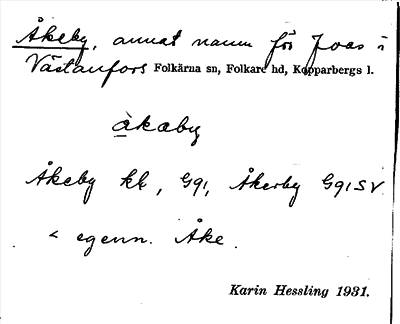 Åkeby, annat namn för Joas i
Västanfors Folkärna sn, Folkare hd, Kopparbergs l.
åkæby
Åkeby kk, G91, Åkerby G91 SV
< egenn. Åke.
Karin Hessling 1931.